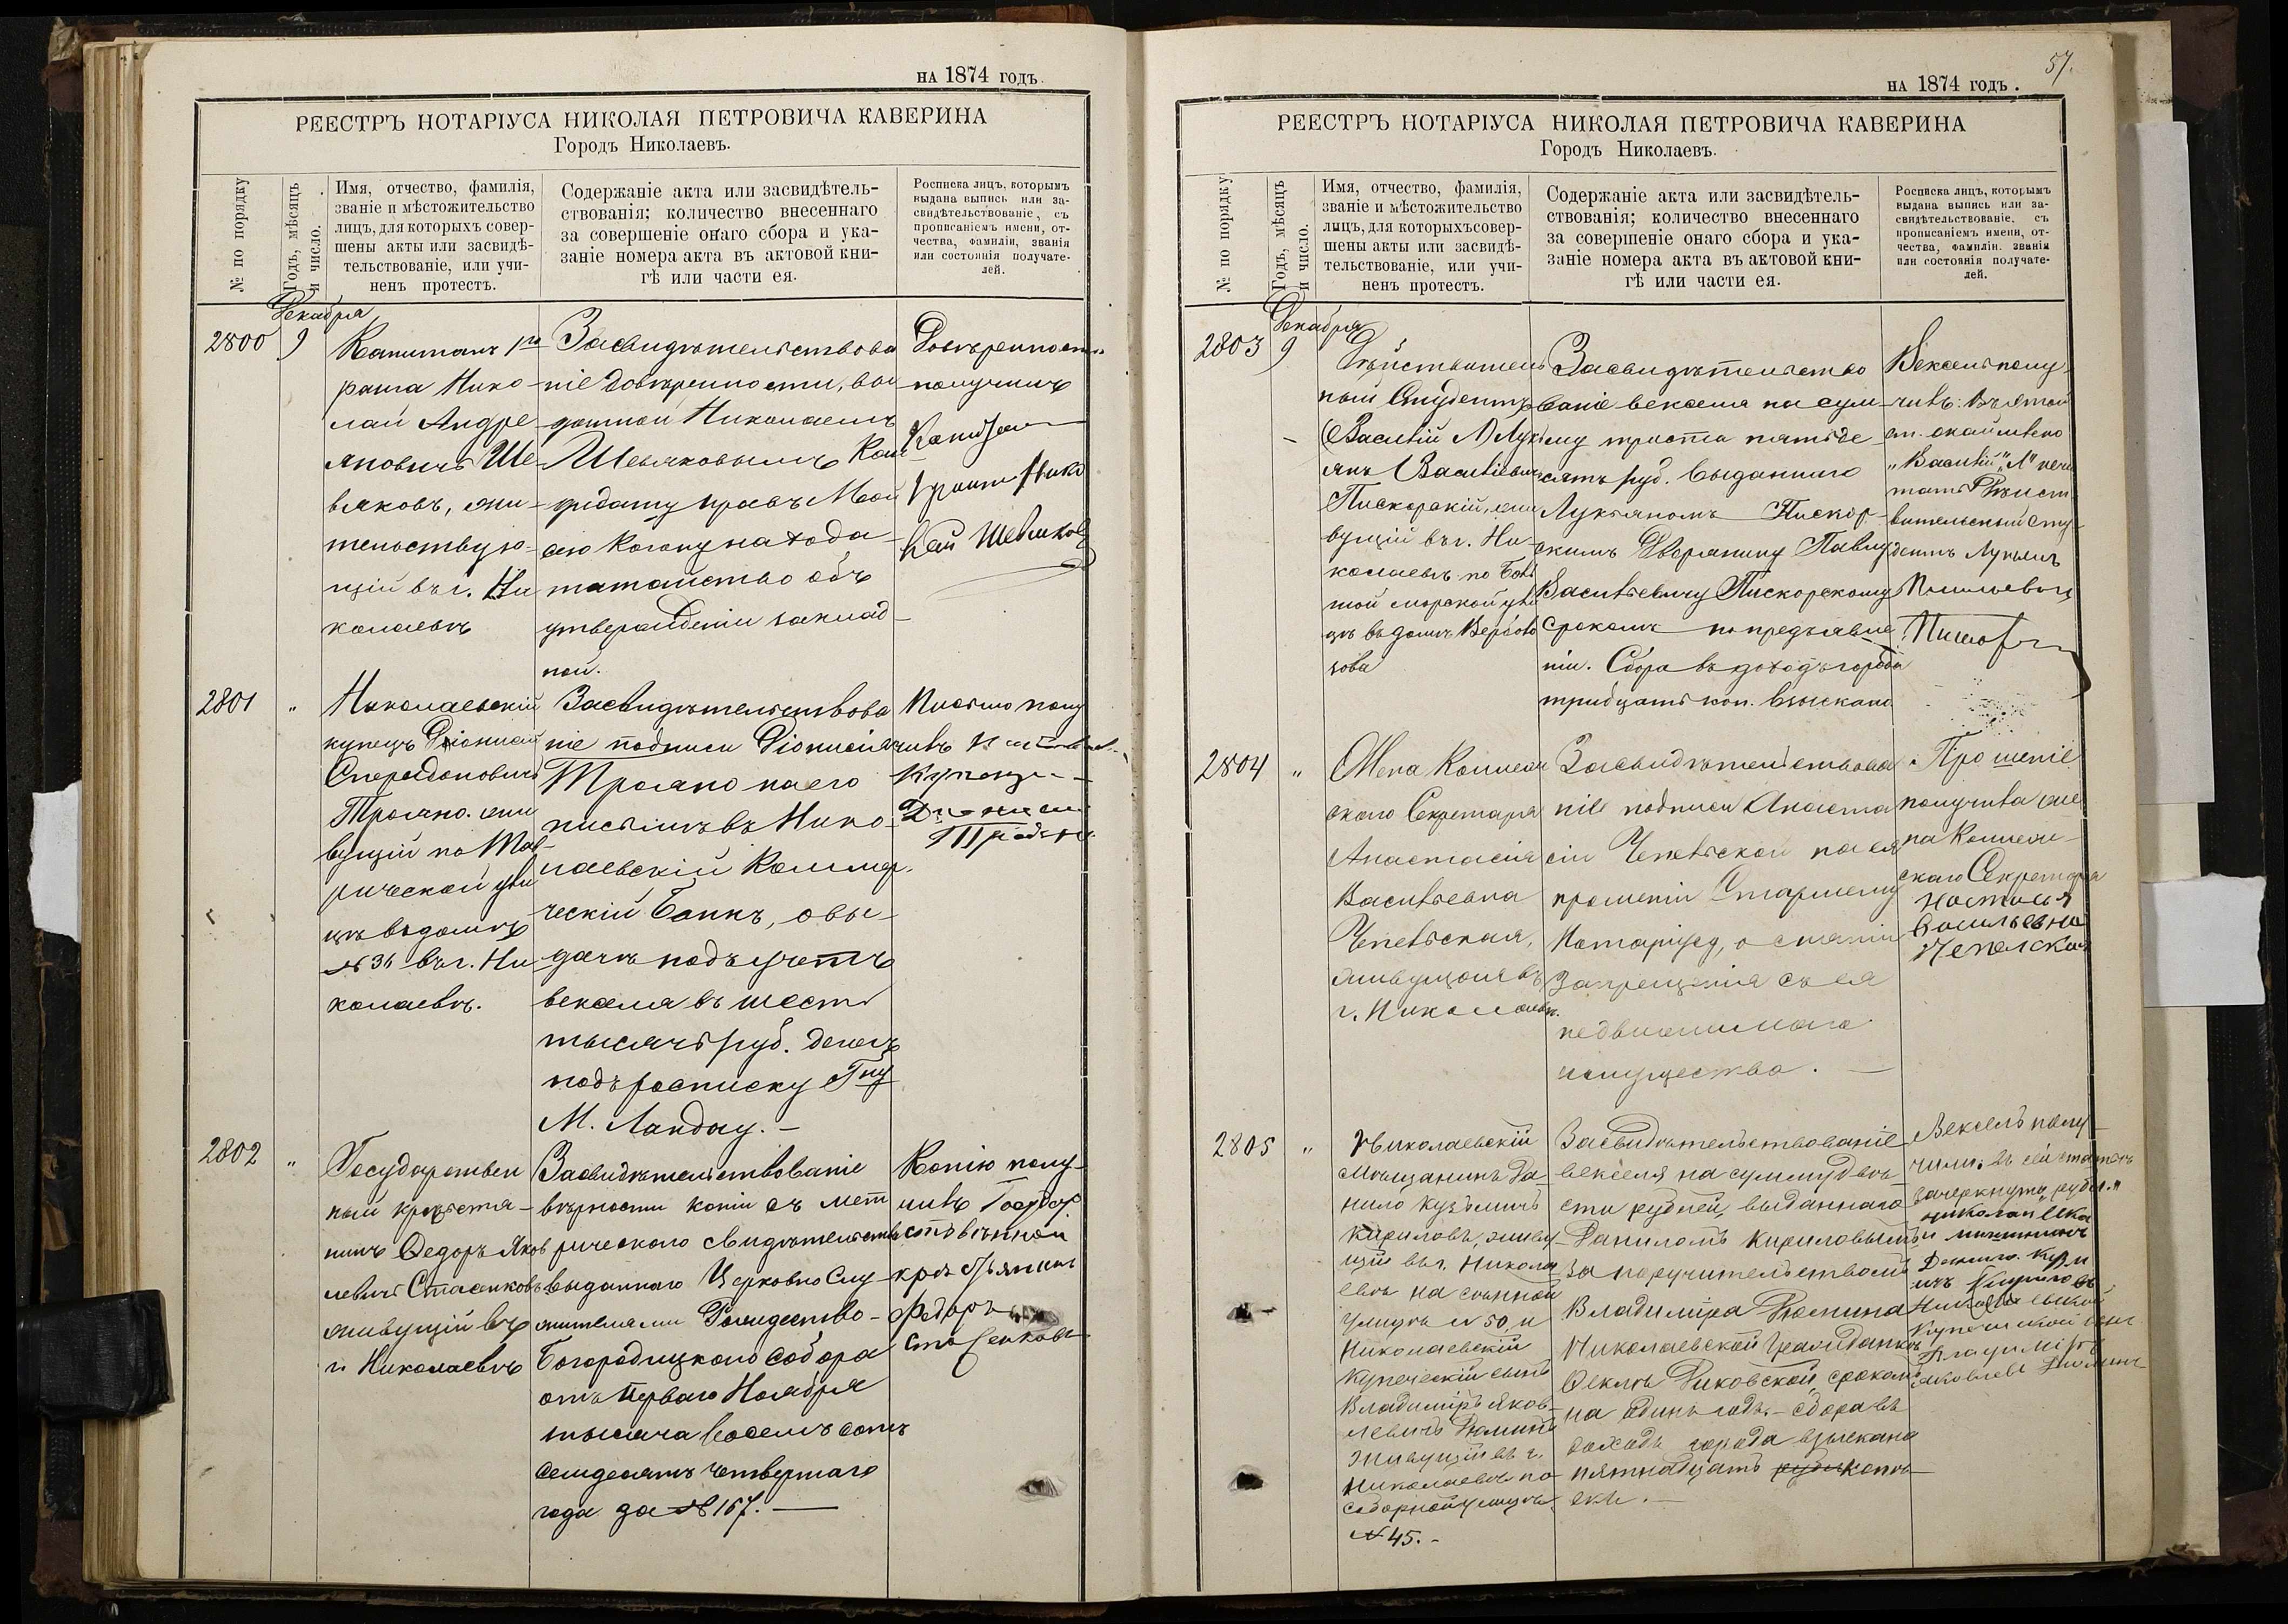 НА 1874 ГОДЪ.
РЕЕСТРЪ НОТАРІУСА НИКОЛАЯ ПЕТРОВИЧА КАВЕРИНА
Городъ Николаевъ.
№ по порядку
Годъ, мѣсяцъ и число.
Имя, отчество, фамилія,
званіе и мѣстожительство
лицъ, для которыхъ совер-
шены акты или засвидѣ-
тельствованіе, или учи-
ненъ протестъ.
Содержаніе акта или засвидѣтель-
ствованія; количество внесеннаго
за совершеніе онаго сбора и ука-
заніе номера акта въ актовой кни-
гѣ или части ея.
Росписка лицъ, которымъ
выдана выпись или за-
свидѣтельствованіе, съ
прописаніемъ имени, от-
чества, фамиліи, званія
или состоянія получате-
лей.
Декабря
2800
9
Капитанъ 1го
ранга Нико-
лай Андре-
яновичъ Ше-
вяковъ, жи-
тельствую-
щій въ г. Ни
колаевѣ
Засвидѣтельствова
ніе довѣренности, вы
данной Николаемъ
Шевяковымъ Кан-
дидату правъ Мой
сею Когону на хода-
тайство объ
утвержденіи заклад-
ной.
Довѣренность
получилъ
Капитан
1 ранга Нико
лай Шевяковъ
2801
"
Николаевскій
купецъ Діонисій
Спиридоновичъ
Трояно. жи
вущій по Тав-
рической ули
цѣ въ домѣ
№ 36 въ г. Ни
колаевѣ.
Засвидѣтельствова
ніе подписи Діонисія
Трояно на его
письмѣ въ Нико-
лаевскій Коммер.
ческій Банкъ, о вы-
дачѣ подъ учетъ
векселя въ шесть
тысячъ руб. денегъ
подъ росписку Гну
М. Ландау. -
Письмо полу
чивъ
Купецъ
Дионисій
Трояно
2802
"
Государствен
ный крестья-
нинъ Федоръ Яков
левичъ Стасенковъ
живущій въ
г. Николаевѣ
Засвидѣтельствованіе
вѣрности копіи съ мет
рическаго свидѣтельства
выданнаго Церковно Слу-
жителями Рождество-
Богородицкаго собора
отъ перваго Ноября
тысяча восемъ сотъ
семдесятъ четвертаго
года за № 167. -
Копію полу-
чивъ Государ
ственной
крестьянинъ
Федоръ
Стасенковъ
57.
НА 1874 ГОДЪ.
РЕЕСТРЪ НОТАРІУСА НИКОЛАЯ ПЕТРОВИЧА КАВЕРИНА
Городъ Николаевъ.
№ по порядку
Годъ, мѣсяцъ и число.
Имя, отчество, фамилія,
званіе и мѣстожительство
лицъ, для которыхъ совер-
шены акты или засвидѣ-
тельствованіе, или учи-
ненъ протестъ.
Содержаніе акта или засвидѣтель-
ствованія; количество внесеннаго
за совершеніе онаго сбора и ука-
заніе номера акта въ актовой кни-
гѣ или части ея.
Росписка лицъ, которымъ
выдана выпись или за-
свидѣтельствованіе, съ
прописаніемъ имени, от-
чества, фамиліи, званія
или состоянія получате-
лей.
Декабря
2803
9
Дѣйствитель
ный Студентъ
(Василій Л) Лукі
янъ Васильевичъ
Пискорскій, жи
вущій въ г. Ни
колаевѣ по Боль
шой морской ули
цѣ въ домѣ
Засвидѣтельство
ваніе векселя на сум
му триста пятьде
сятъ руб. выданнаго
Лукіяномъ Пискор-
скимъ Дворянину Павлу
Васильевичу Пискорскому
срокомъ по предъявле
ніи. Сбора въ доходъ города
тридцать коп. взыскано
Вексель полу-
чивъ:
ст.
"Василій" "Л" не чи
тать Дѣйст
вительный сту-
дентъ Лукьянъ
2804
"
Жена Коллеж
скаго Секретаря
Анастасія
Васильевна
Чепельская,
живущая въ
г. Николаевѣ.
Засвидѣтельствова
ніе подписи Анаста
сіи Чепельской на ея
прошеніи Старшему
Нотаріусу, о снятіи
запрещенія съ ея
недвижимаго
имущества. -
Прошеніе
получила же
на Коллеж-
скаго Секретаря
Настасья
Васильевна
Чепелская
2805
"
Николаевскій
мѣщанинъ Да-
нило Кузьмичъ
Кириловъ, живу-
щій въ г. Никола
евѣ на
улицѣ № 50, и
Николаевскій
Купеческій сынъ
Владиміръ Яков-
левичъ Дюминъ
живущій въ г.
Николаевѣ по
Соборной улицѣ
№ 45. -
Засвидѣтельствованіе
векселя на сумму двѣ-
сти рублей, выданнаго
Даниломъ Кириловымъ
за поручительствомъ
Владиміра Дюмина
Николаевской гражданкѣ
Феклѣ Диковской, срокомъ
на одинъ годъ. - сбора въ
доходъ города взыскано
пятнадцать рубл копѣ-
екъ. -
Вексель полу-
чили. въ сей статьѣ
зачеркнуто "рубл."
николаевска
й мѣщанинъ
Данило Кузм
ичъ Кириловъ
Николаевской
Купеческой сынъ
Владиміръ
Яковлевъ Дюминъ